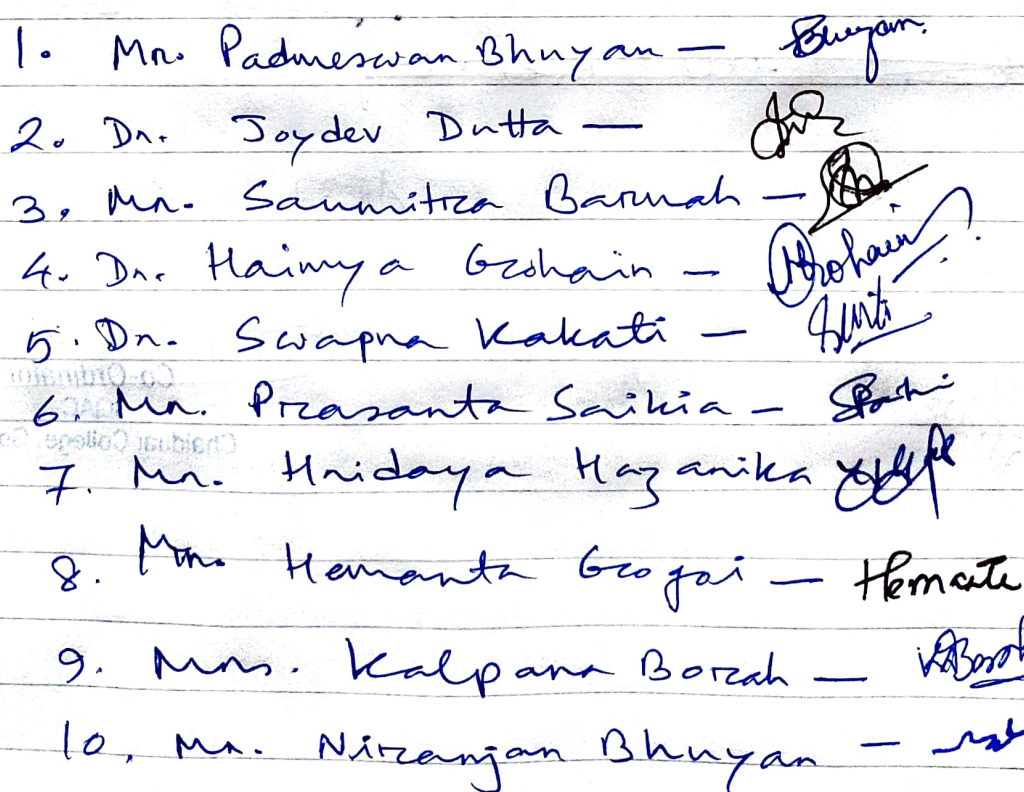 1. Mr. Padmeswar Bhuyan — Bhuyan.
2. Dr. Joydev Dutta —
3. Mr. Saumitra Baruah —
4. Dr. Haimya Gohain — Gohain
5. Dr. Swapna Kakati —
6. Mr. Prasanta Saikia —
7. Mr. Hridaya Hazarika
8. Mr. Hemanta Gogoi — Hemanta
9. Mrs. Kalpana Borah — KBorah
10. Mr. Niranjan Bhuyan —
Co-Ordinator
IQAC
Chaiduar College